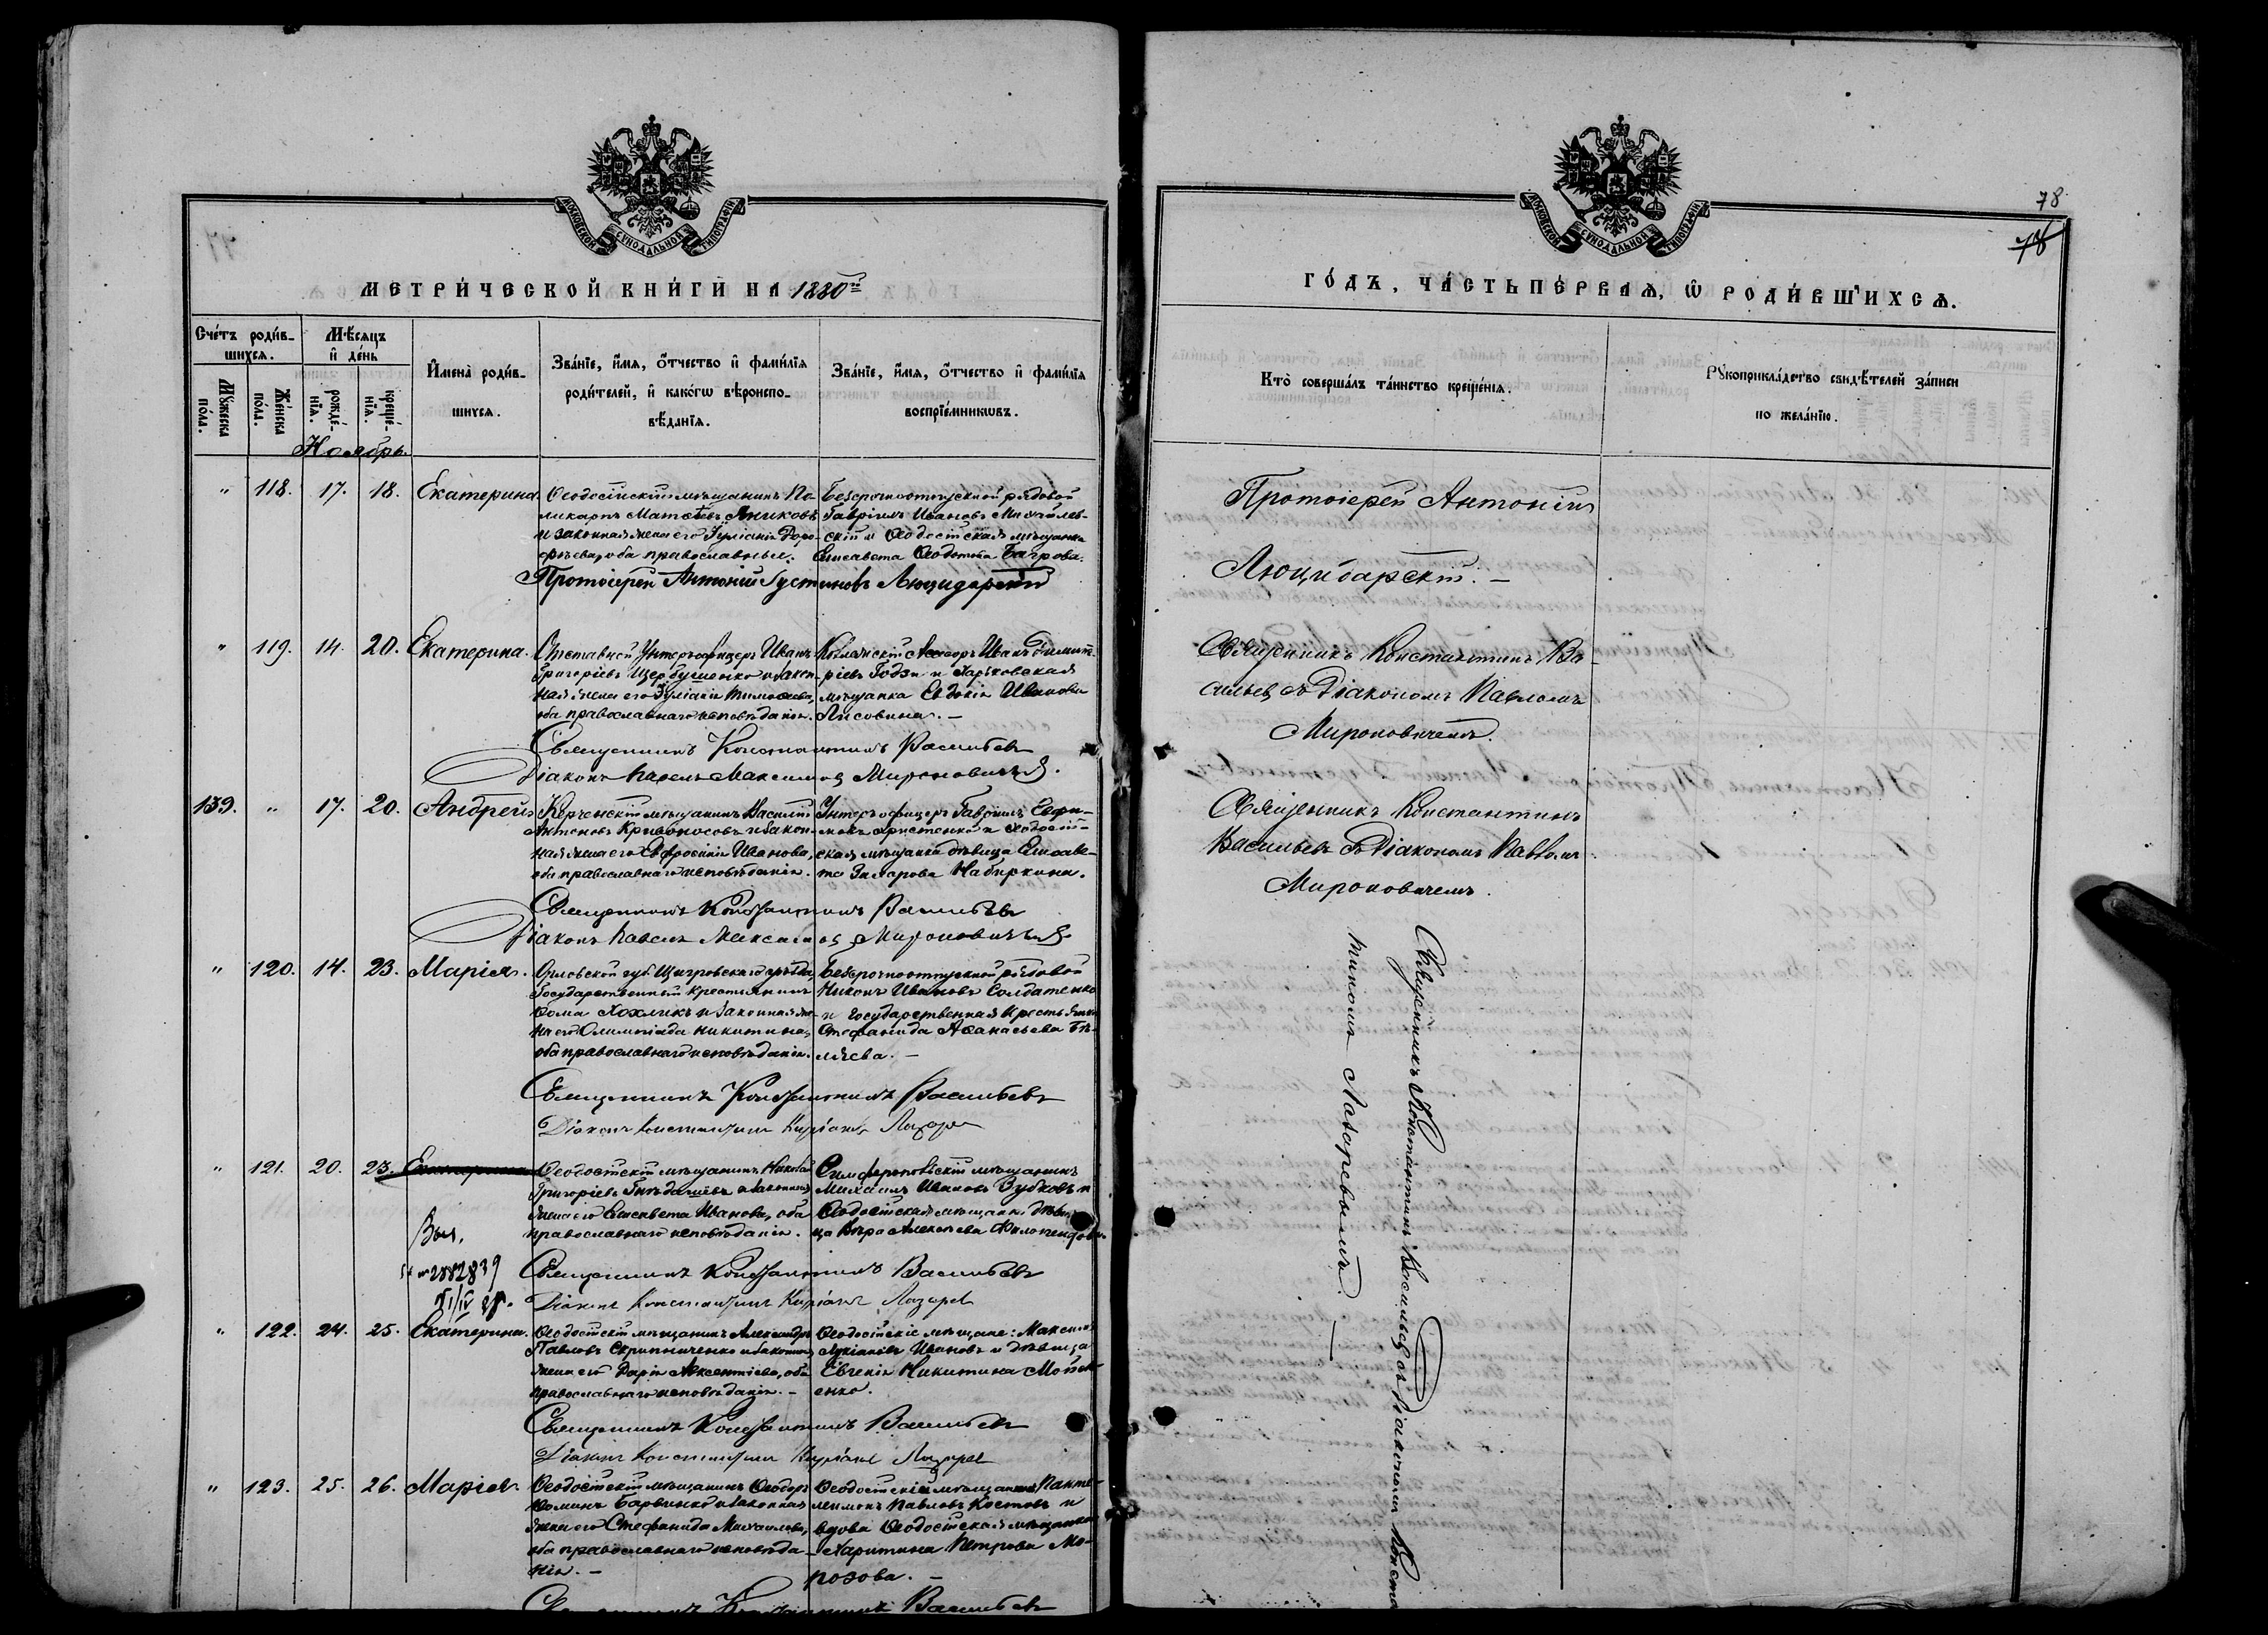 МОСКОВСКОЙ СѴНОДАЛЬНОЙ ТИПОГРАФІИ
МЕТРИ́ЧЕСКОЙ КНИ́ГИ НА 1880й
Сче́тъ роди́в-
шихся.
Мѣ́сяцъ
и҆ де́нь
Мꙋ́жеска
по́ла.
Же́нска
по́ла.
рожде́-
нїѧ.
креще́-
нїѧ.
И҆мена̀ роди́в-
шихсѧ.
Зва́нїе, и҆́мѧ, ѻ҆́тчество и҆ фами́лїѧ
роди́телей, и҆ како́гѡ вѣроиспо-
вѣ́данїѧ.
Зва́нїе, и҆́мѧ, ѻ҆́тчество и҆ фами́лїѧ
воспрїе́мникѡвъ.
Ноябрь.
" 118. 17. 18. Екатерина.
Ѳеодосійскій мѣщанинъ По-
ликарпъ Матѳѣевъ Аниковъ
и законная жена его Іуліанія Доро-
ѳѣева, оба православные.
Безсрочноотпускной рядовой
Гавріилъ Ивановъ Михайлев-
скій и Ѳеодосійская мѣщанка
Елисавета Ѳедотова Багрова.
Протоіерей Антоній Густиновъ Люцидарскій
" 119. 14. 20. Екатерина.
Отставной Унтеръ-офицеръ Иванъ
Григорьевъ Щербушенко и закон-
ная жена его Іуліанія Тимоѳеева,
оба православнаго исповѣданія.
Коллежскій Ассесоръ Иванъ Димит-
ріевъ Годзи и Харьковская
мѣщанка Евдокія Иванова
Лисовина. –
Священникъ Константинъ Васильевъ
Діаконъ Павелъ Максимовъ Мироновичъ.
139. " 17. 20. Андрей
Керченскій мѣщанинъ Василій
Антоновъ Кривоносовъ и закон-
ная жена его Евфросинія Иванова,
оба православнаго исповѣданія.
Унтеръ офицеръ Гавріилъ Ефи-
мовъ Христенко и Ѳеодосій-
ская мѣщанка дѣвица Елисаве-
та Захарова Набиркина.
Священникъ Константинъ Васильевъ
Діаконъ Павелъ Максимовъ Мироновичъ
" 120. 14. 23. Марія.
Орловской губ. Щигровскаго уѣзда,
Государственный Крестьянинъ
Ѳома Хохликъ и законная же-
на его Олимпіада Никитина,
оба православнаго исповѣданія.
Безсрочноотпускной рядовой
Никонъ Ивановъ Солдатенко
и государственная Крестьянка
Стефанида Аѳанасьева Бѣ-
ляева. –
Священникъ Константинъ Васильевъ
Діаконъ Константинъ Киріаковъ Лазаревъ
" 121. 20. 23. Екатерина
Ѳеодосійскій мѣщанинъ Николай
Григорьевъ Гнѣдашевъ и законная
жена его Елисавета Иванова, оба
православнаго исповѣданія.
Симферопольскій мѣщанинъ
Михаилъ Ивановъ Зубковъ и
Ѳеодосійская мѣщанка дѣви-
ца Вѣра Алексѣева
Священникъ Константинъ Васильевъ
Діаконъ Константинъ Киріаковъ Лазаревъ
" 122. 24. 25. Екатерина.
Ѳеодосійскій мѣщанинъ Александръ
Павловъ Скрипниченко и законная
жена его Дарія Авксентіева, оба
православнаго исповѣданія. –
Ѳеодосійскіе мѣщане: Максимъ
Лукіановъ Ивановъ и дѣвица
Евгенія Никитина
енко.
Священникъ Константинъ Васильевъ
Діаконъ Константинъ Киріаковъ Лазаревъ
" 123. 25. 26. Марія.
Ѳеодосійскій мѣщанинъ Ѳеодоръ
Ѳоминъ Барвинко и законная
жена его Стефанида Михайлова,
оба православнаго исповѣда-
нія. –
Ѳеодосійскій мѣщанинъ Панте-
леимонъ Павловъ Костовъ и
вдова Ѳеодосійская мѣщанка
Харитина Петрова Мо-
розова. –
Священникъ Константинъ Васильевъ
78
МОСКОВСКОЙ СѴНОДАЛЬНОЙ ТИПОГРАФІИ
ГО́ДЪ, ЧА́СТЬ ПЕ́РВАѦ, Ѡ҆ РОДИ́ВШИХСѦ.
Кто̀ соверша́лъ та́инство креще́нїѧ.
Рꙋкоприкла́дство свидѣ́телей за́писи
по жела́нїю.
Протоіерей Антоній
Люцидарскій. –
Священникъ Константинъ Ва-
сильевъ съ Діакономъ Павломъ
Мироновичемъ.
Священникъ Константинъ
Васильевъ съ Діакономъ Павломъ
Мироновичемъ.
Священникъ Константинъ Васильевъ съ Діакономъ Конста
нтиномъ Лазаревымъ. –